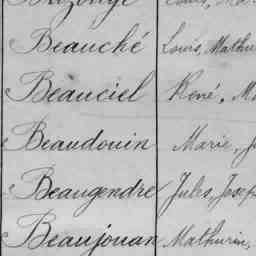 Beauché Louis, Mathu
Beauciel René, M
Beaudouin Marie, J
Beaugendre Jules, Josep
Beaujouan Mathurin,